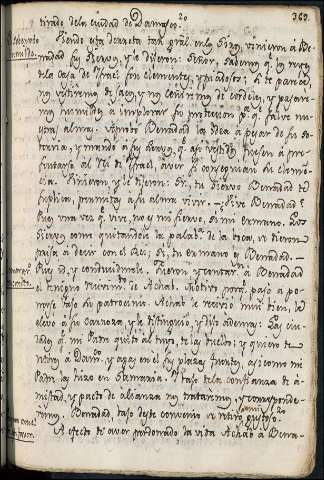 363.
tirado de la ciudad de Damasco.
Siendo esta derrota tan gral. en los Siros, vinieron á Be-
nadad sus Siervos, y le dijeron: Señor, sabemos q. los reyes
de la casa de Israel son clementes, y piadosos; si te parece,
nos vistiremos de sacos, y nos ceñiremos de cordeles, y pasare-
mos humildes á implorar su proteccion p.a q.e salve nues-
tras almas. Aprobó Benadad la idea á pesar de su so-
bervia, y mandó á sus siervos q. asi vestidos fuesen á pre-
sentarse al Rei de Israel, á ver si conseguian su clemen-
cia. Vinieron, y le dijeron: Sr. tu Siervo Benadad te
suplica, permitas á su alma vivir. - ¿Vive Benadad?
Pues una vez q. vive, no es mi siervo, si mi ermano. Los
siervos como quitandole la palab.a de la boca, se dieron
prisa á decir con el Rei; Si, tu ermano es Benadad. -
Pues id, y conducidmelo. Fueron y contar. á Benadad
el benigno recivim.to de Achab. Motivo porq. pasó a po-
nerse bajo su patrocinio. Achab le recivió mui bien, le
elevó á su carroza, y le distinguió, y dijo ademas: Las ciu-
dades q. mi Padre quitó al tuyo, te las debuelvo; y quiero te
retires á Damasco, y agas en él tus plazas fuertes, asi como mi
Padre las hizo en Samaria. Y bajo de la confianza de a-
mistad, y pacto de alianza nos trataremos, y corresponde-
remos. Benadad, bajo deste convenio se retiró gustoso.
A efecto de aver perdonado la vida Achab á Bena-